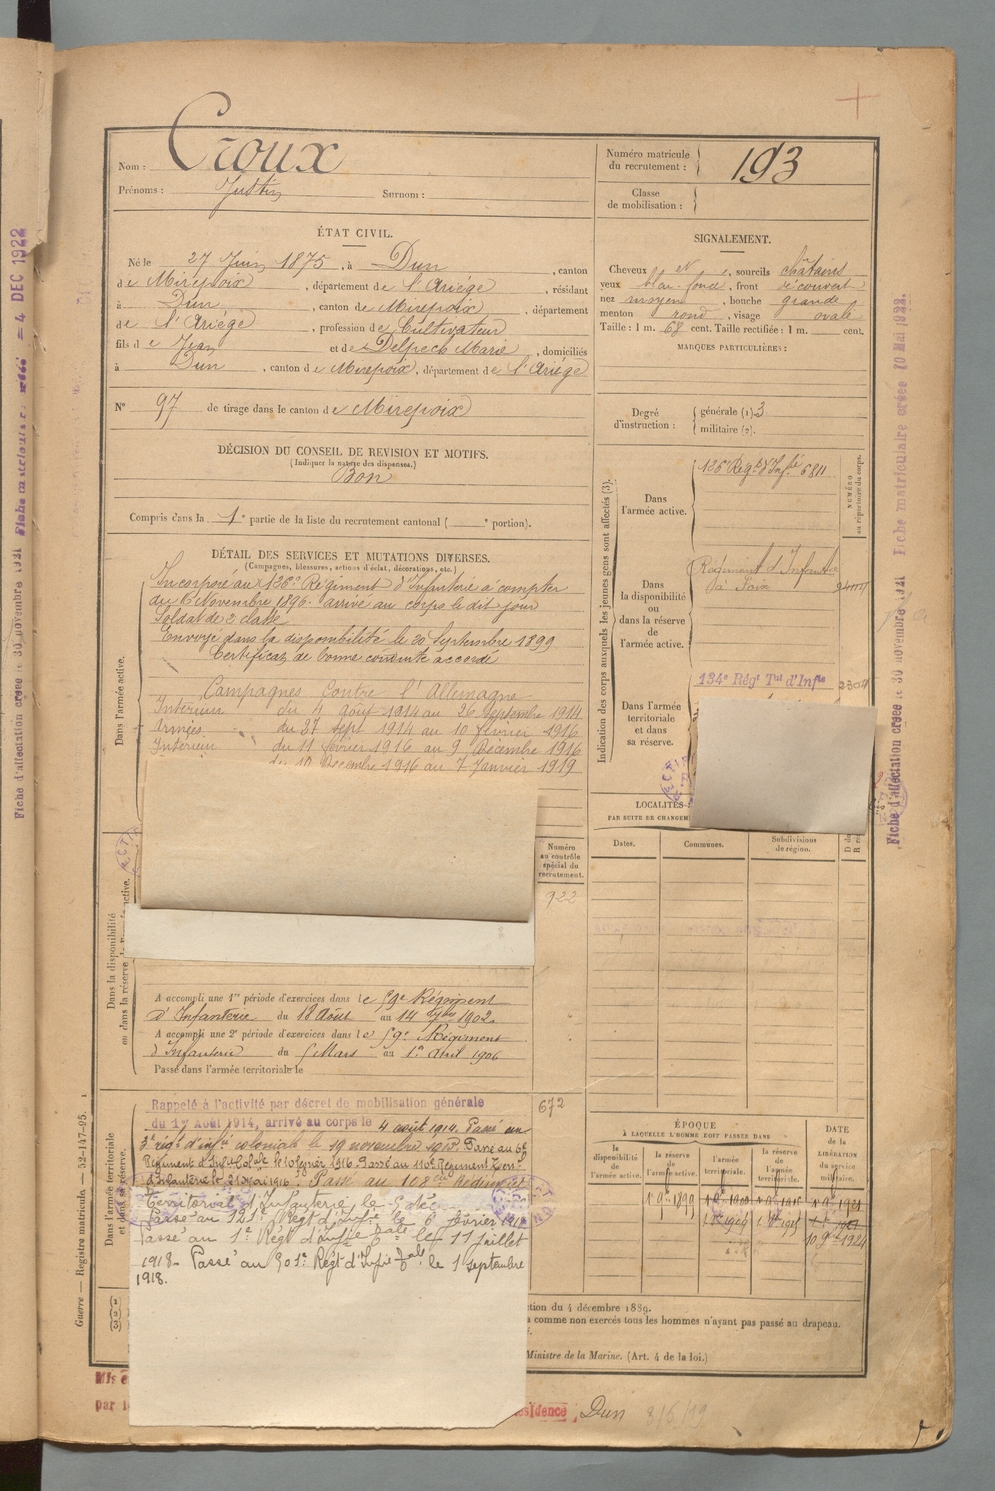 Nom : Croux
Prénoms : Justin Surnom :
Numéro matricule du recrutement : 193
Classe de mobilisation :
ÉTAT CIVIL.
Né le 27 Juin 1875, à Dun, canton
de Mirepoix, département de l'Ariège, résidant
à Dun, canton de Mirepoix, département
de l'Ariège, profession de Cultivateur
fils de Jean et de Delpech Marie, domiciliés
à Dun, canton de Mirepoix, département de l'Ariège
N° 97 de tirage dans le canton de Mirepoix
SIGNALEMENT.
Cheveux sourcils châtains
yeux front découvert
nez moyen, bouche grande
menton rond, visage ovale
Taille : 1 m. 68 cent. Taille rectifiée : 1 m. cent.
MARQUES PARTICULIÈRES :
Degré d'instruction : générale (1) 3
militaire (2).
DÉCISION DU CONSEIL DE REVISION ET MOTIFS.
(Indiquer la nature des dispenses.)
Bon
Compris dans la 1e partie de la liste du recrutement cantonal ( e portion).
DÉTAIL DES SERVICES ET MUTATIONS DIVERSES.
(Campagnes, blessures, actions d'éclat, décorations, etc.)
Dans l'armée active.
Incorporé au 126e Régiment d'Infanterie à compter
du 6 Novembre 1896 arrivé au corps le dit jour
Soldat de 2e classe
Envoyé dans la disponibilité le 20 Septembre 1899
Certificat de bonne conduite accordé
Campagnes contre l'Allemagne
Intérieur du 4 août 1914 au 26 septembre 1914
Armées du 27 sept 1914 au 10 février 1916
Intérieur du 11 février 1916 au 9 Décembre 1916
du 10 Décembre 1916 au 7 Janvier 1919
Indication des corps auxquels les jeunes gens sont affectés (3).
NUMÉRO au répertoire du corps.
Dans l'armée active.
126e Regt d'Infie 6811
Dans la disponibilité ou dans la réserve de l'armée active.
Régiment d'Infanterie
à Foix
Dans l'armée territoriale et dans sa réserve.
134e Régt Tal d'Infie
LOCALITÉS
PAR SUITE DE CHANGEM
Dates. Communes. Subdivisions de région.
Dans la disponibilité
ou dans la réserve de l'armée active.
Numéro au contrôle spécial du recrutement.
922
A accompli une 1re période d'exercices dans le 59e Régiment
d'Infanterie du 18 Août au 14 7bre 1902
A accompli une 2e période d'exercices dans le 59e Régiment
d'Infanterie du 5 Mars au 1er Avril 1906
Passé dans l'armée territoriale le
Dans l'armée territoriale et dans sa réserve.
672
Rappelé à l'activité par décret de mobilisation générale
du 1er Août 1914, arrivé au corps le 4 août 1914. Passé au
régt d'infie coloniale le 19 novembre 1915. Passé au 6e
Régiment d'Infie Colale le 10 février 1916. Passé au 110e Régiment Terr
d'Infanterie le 21 Mai 1916. Passé au 108e Régiment
Territorial d'Infanterie le 5 déc
Passé au 121e Régt d'Infie le 6 février 1918
Passé au 1e Régt d'Infie Cale le 11 juillet
1918. Passé au 301e Régt d'Infie le 1 septembre
1918.
ÉPOQUE
À LAQUELLE L'HOMME DOIT PASSER DANS
la disponibilité de l'armée active. la réserve de l'armée active. l'armée territoriale. la réserve de l'armée territoriale.
DATE de la LIBÉRATION du service militaire.
ction du 4 décembre 1889.
comme non exercés tous les hommes n'ayant pas passé au drapeau.
Ministre de la Marine. (Art. 4 de la loi.)
Guerre — Registre matricule. — 52-147-95.
Mis e
par l
ésidence : Dun 3/5/19
Fiche d'affectation créée le 30 novembre 1921 Fiche matriculaire créée = 4 DEC 1922
Fiche d'affectation créée le 30 novembre 1921 Fiche matriculaire créée 10 Mai 1922.